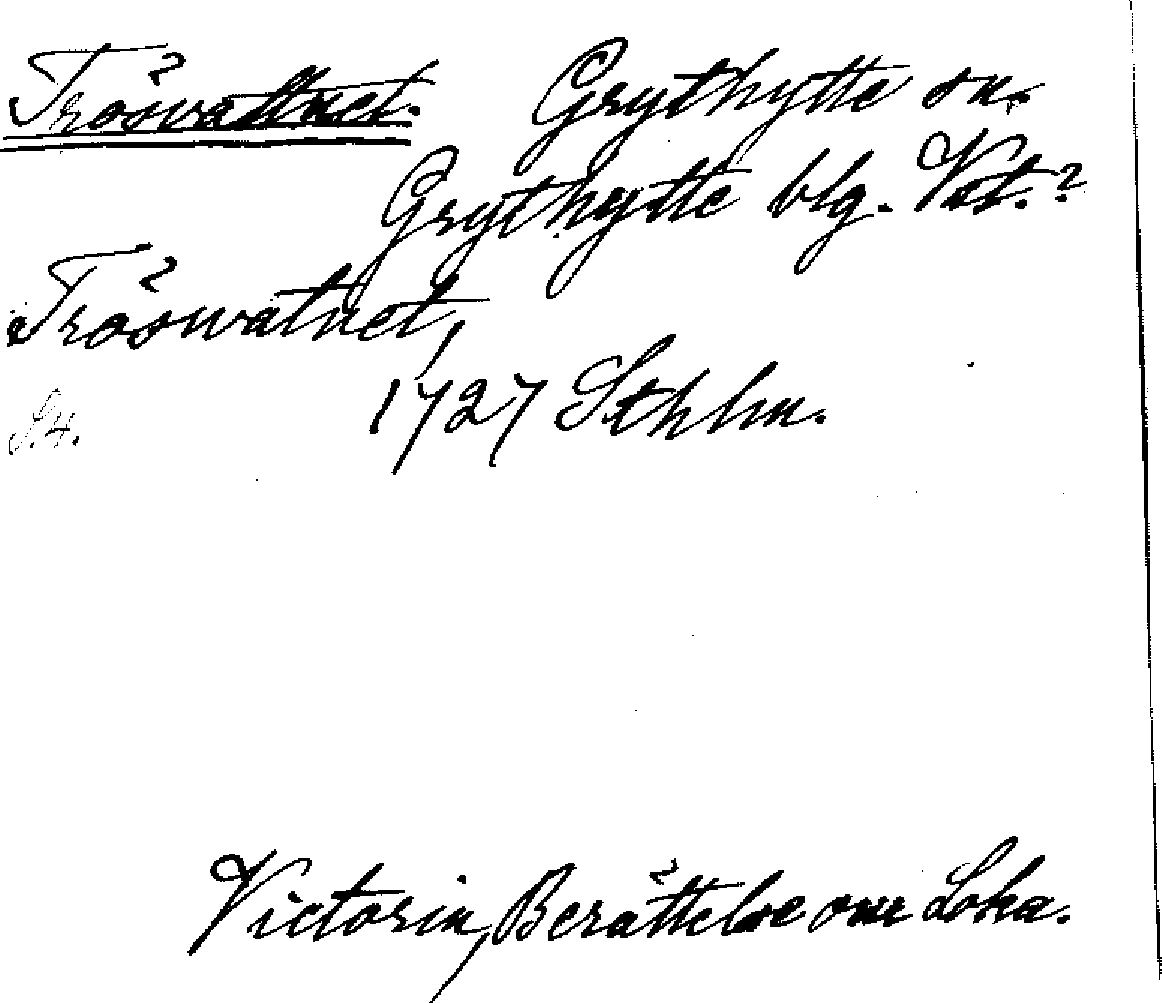 Trösvattnet. Grythytte sn.
Grythytte blg. Vst.?
Tröswatnet,
1727 Sthlm.
Victorin, Berättelse om Loka.